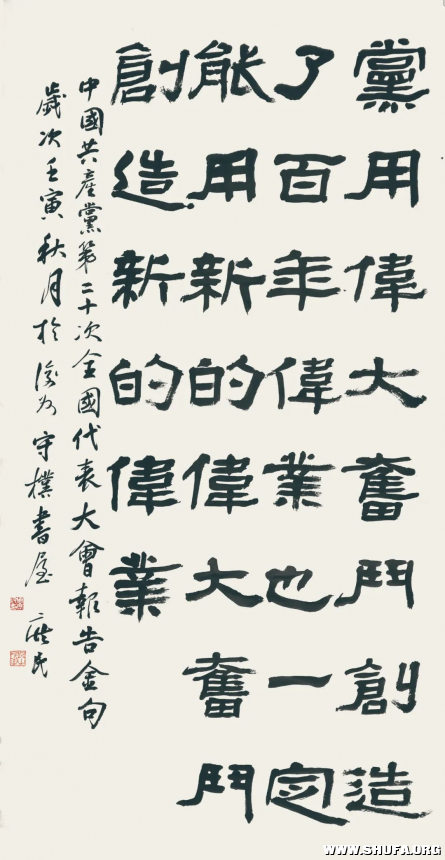 黨用偉大奮鬥創造
了百年偉業也一定
能用新的偉大奮鬥
創造新的偉業
中國共產黨第二十次全國代表大會報告金句
歲次壬寅秋月於守樸書屋民
WWW.SHUFA.ORG